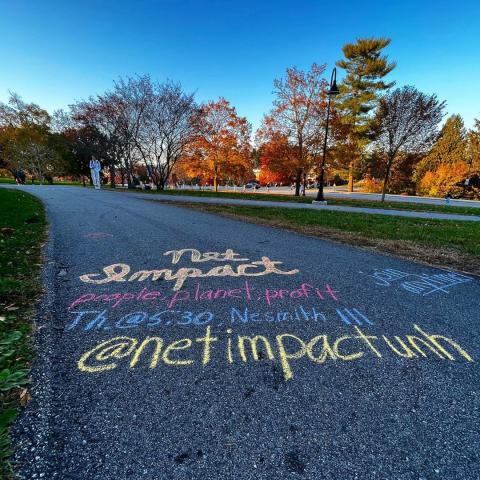 Net
Impact
people.planet.profit
Th.@5:30 Nesmith 111
@netimpactunh
Join